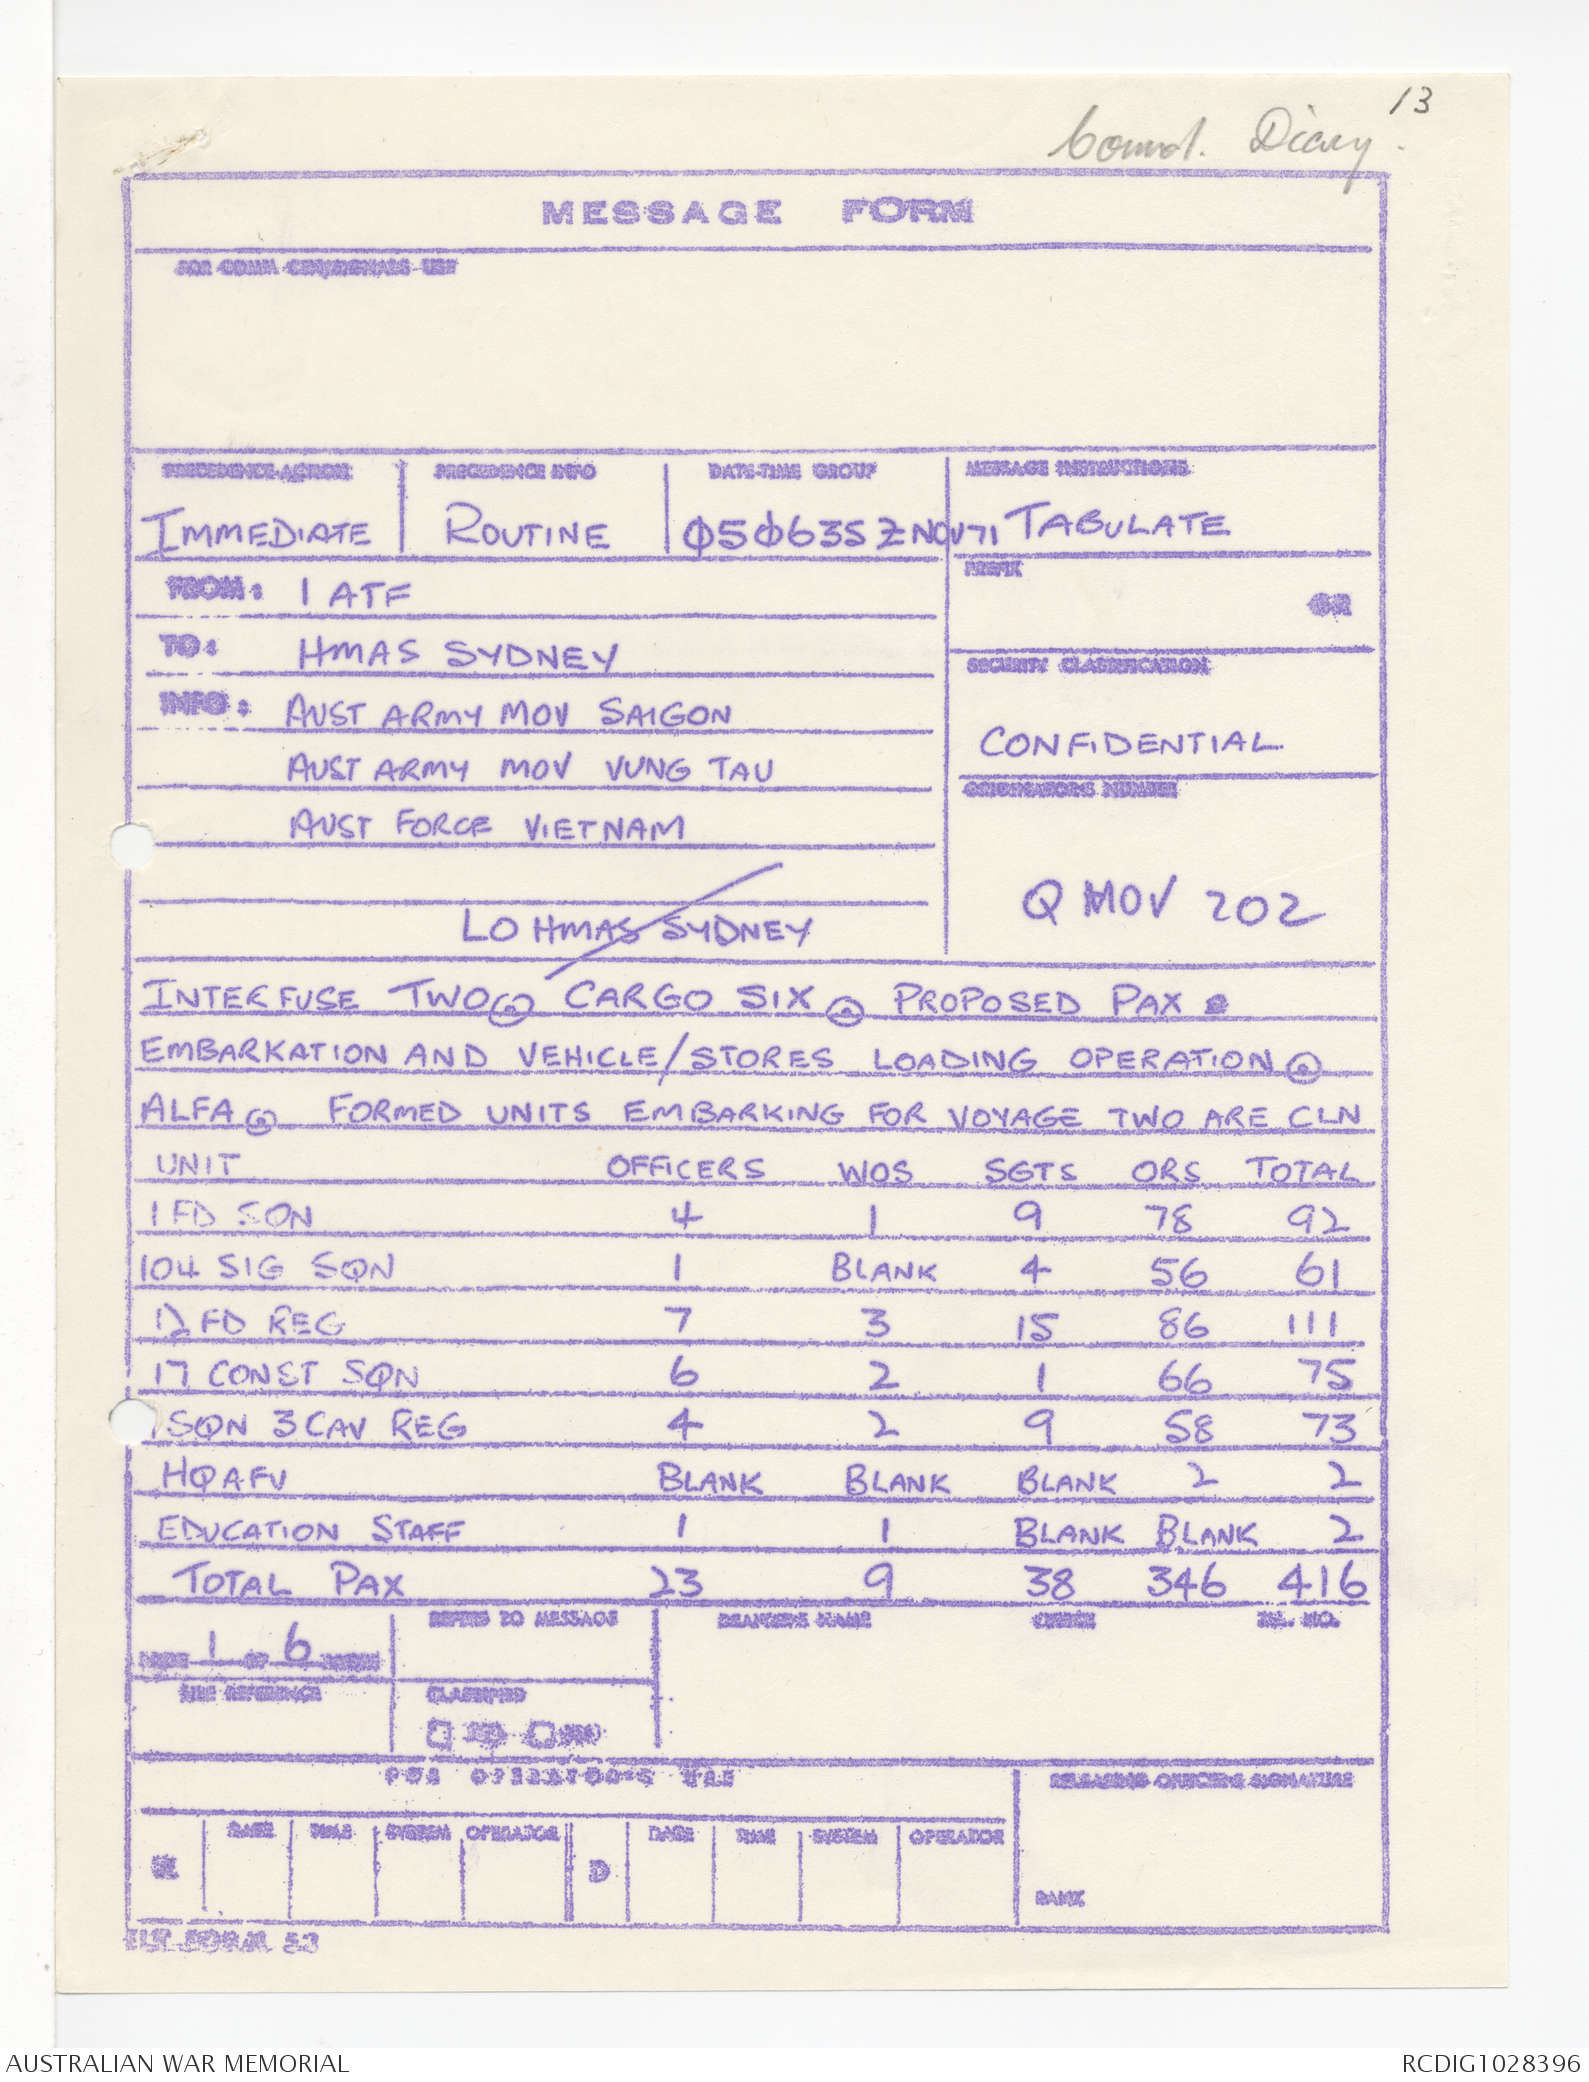 13
Comd. Diary.
MESSAGE FORM
FOR COMM CEN/SIGNALS USE
PRECEDENCE-ACTION PRECEDENCE INFO DATE-TIME GROUP MESSAGE INSTRUCTIONS
IMMEDIATE ROUTINE Ø5Ø635Z NOV 71 TABULATE
PREFIX
FROM: 1 ATF
GR
TO: HMAS SYDNEY
SECURITY CLASSIFICATION
INFO: AUST ARMY MOV SAIGON
CONFIDENTIAL
AUST ARMY MOV VUNG TAU
ORIGINATORS NUMBER
AUST FORCE VIETNAM
Q MOV 202
LO HMAS SYDNEY
INTERFUSE TWO. CARGO SIX. PROPOSED PAX
EMBARKATION AND VEHICLE/STORES LOADING OPERATION.
ALFA. FORMED UNITS EMBARKING FOR VOYAGE TWO ARE CLN
UNIT OFFICERS WOS SGTS ORS TOTAL
1 FD SQN 4 1 9 78 92
104 SIG SQN 1 BLANK 4 56 61
12 FD REG 7 3 15 86 111
17 CONST SQN 6 2 1 66 75
SQN 3 CAV REG 4 2 9 58 73
HQ AFV BLANK BLANK BLANK 2 2
EDUCATION STAFF 1 1 BLANK BLANK 2
TOTAL PAX 23 9 38 346 416
REFERS TO MESSAGE DRAFTER'S NAME TEL. NO.
PAGE 1 OF 6 PAGES
FILE REFERENCE CLASSIFIED
FOR OPERATOR'S USE RELEASING OFFICERS SIGNATURE
DATE TIME SYSTEM OPERATOR DATE TIME SYSTEM OPERATOR
R D
RANK
FORM 53
AUSTRALIAN WAR MEMORIAL
RCDIG1028396